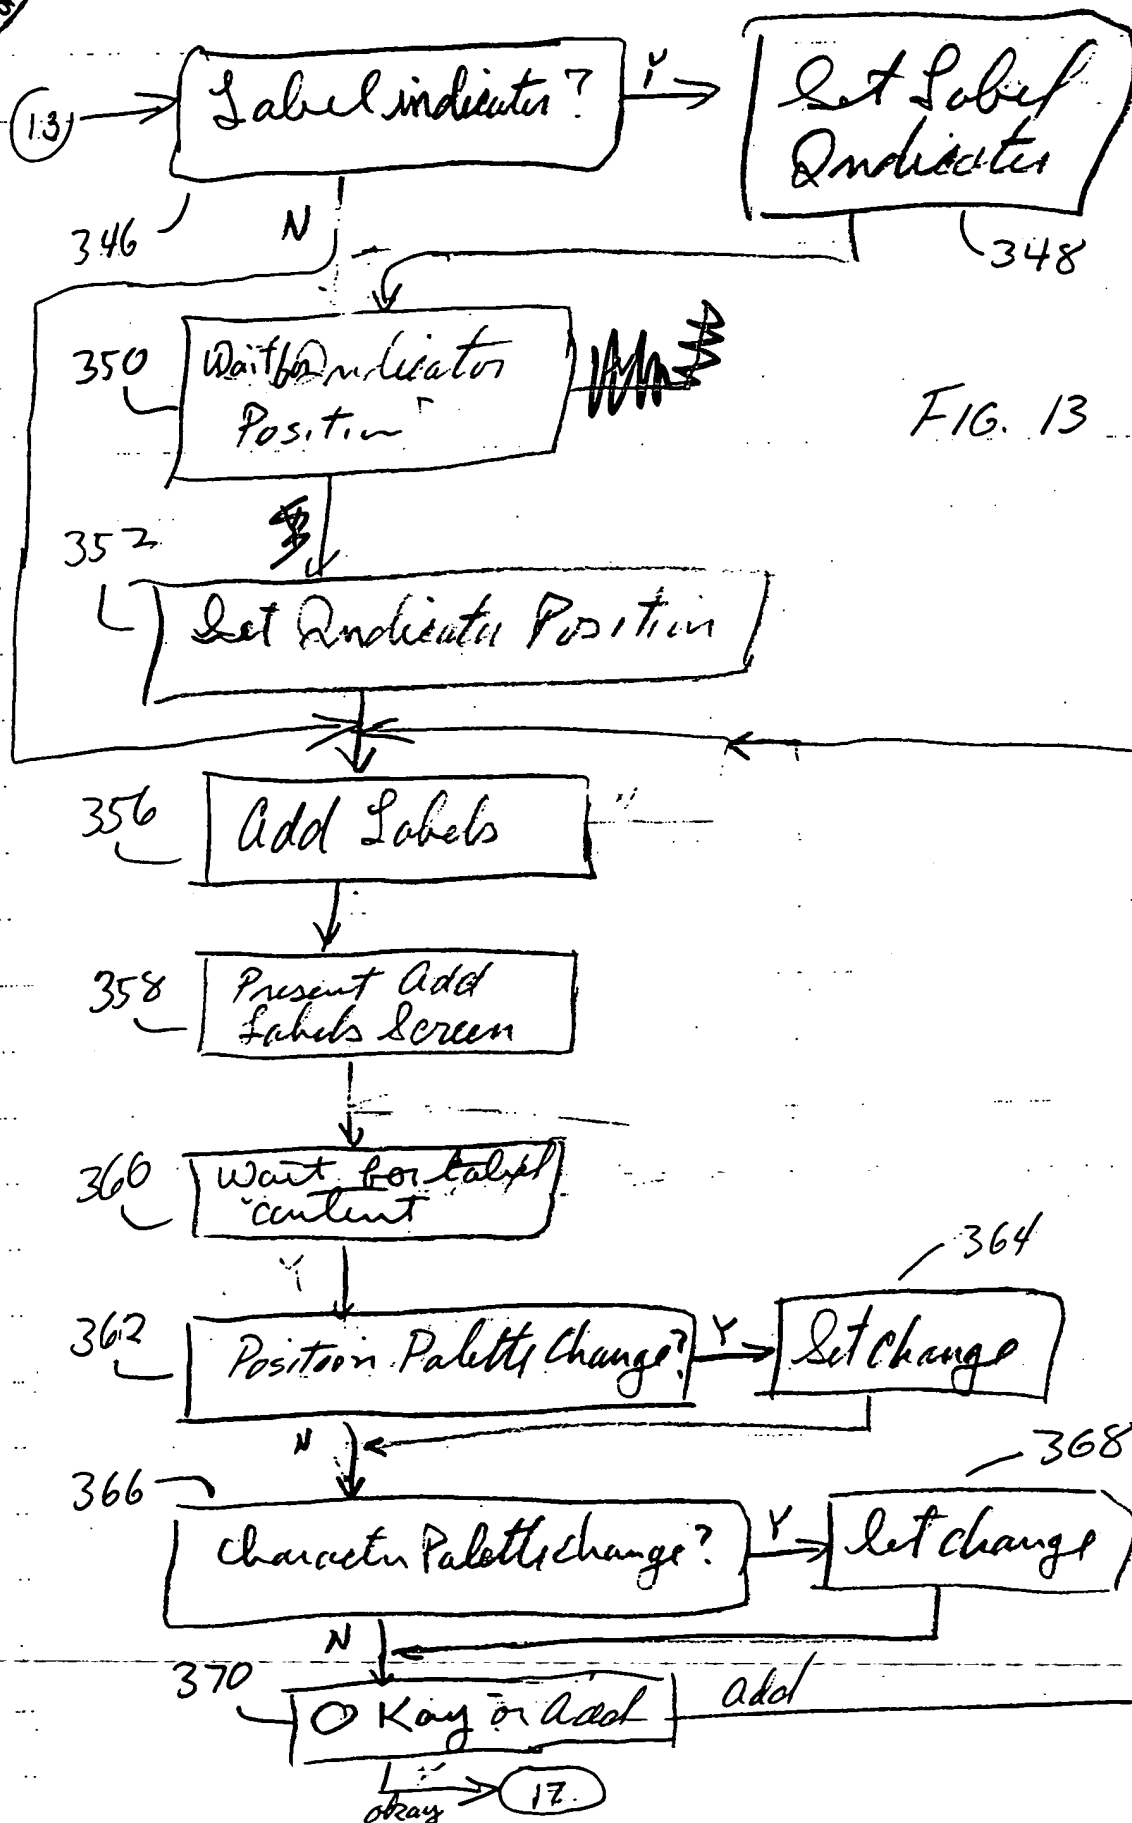 13
Label indicator?
Y
Set Label
Indicator
346
N
348
350
Wait for Indicator
Position
FIG. 13
352
Set Indicator Position
356
Add Labels
358
Present Add
Labels Screen
360
Wait for Label
content
Y
364
362
Position Palette Change?
Y
Set Change
N
368
366
Character Palette change?
Y
Set change
N
370
OKay or Add
add
okay
17.